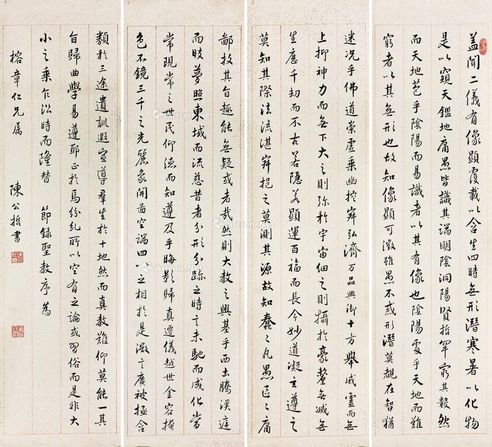 盖聞二儀有像顯覆載以含生四時無形潛寒暑以化物
是以窺天鑑地庸愚皆識其端明陰洞陽賢哲罕窮其數然
而天地苞乎陰陽而易識者以其有像也陰陽處乎天地而難
窮者以其無形也故知像顯可徵雖愚不惑形潛莫覩在智猶
迷況乎佛道崇虛乘幽控寂弘濟万品典御十方舉威靈而無
上抑神力而無下大之則弥於宇宙細之則攝於豪釐無滅無
生歷千劫而不古若隱若顯運百福而長今妙道凝玄遵之
莫知其際法流湛寂挹之莫測其源故知蠢之凡愚區之庸
鄙投其旨趣能無疑或者哉然則大教之興基乎西土騰漢庭
而皎夢照東域而流慈昔者分形分跡之時言未馳而成化當
常現常之世民仰德而知遵及乎晦影歸真遷儀越世金容掩
色不鏡三千之光麗象開圖空端四八之相於是微言廣被拯含
類於三途遺訓遐宣導群生於十地然而真教難仰莫能一其
旨歸曲學易遵耶正於焉紛糺所以空有之論或習俗而是非大
小之乘乍沿時而隆替 節錄聖教序 為
榕章仁兄属 陳公哲書